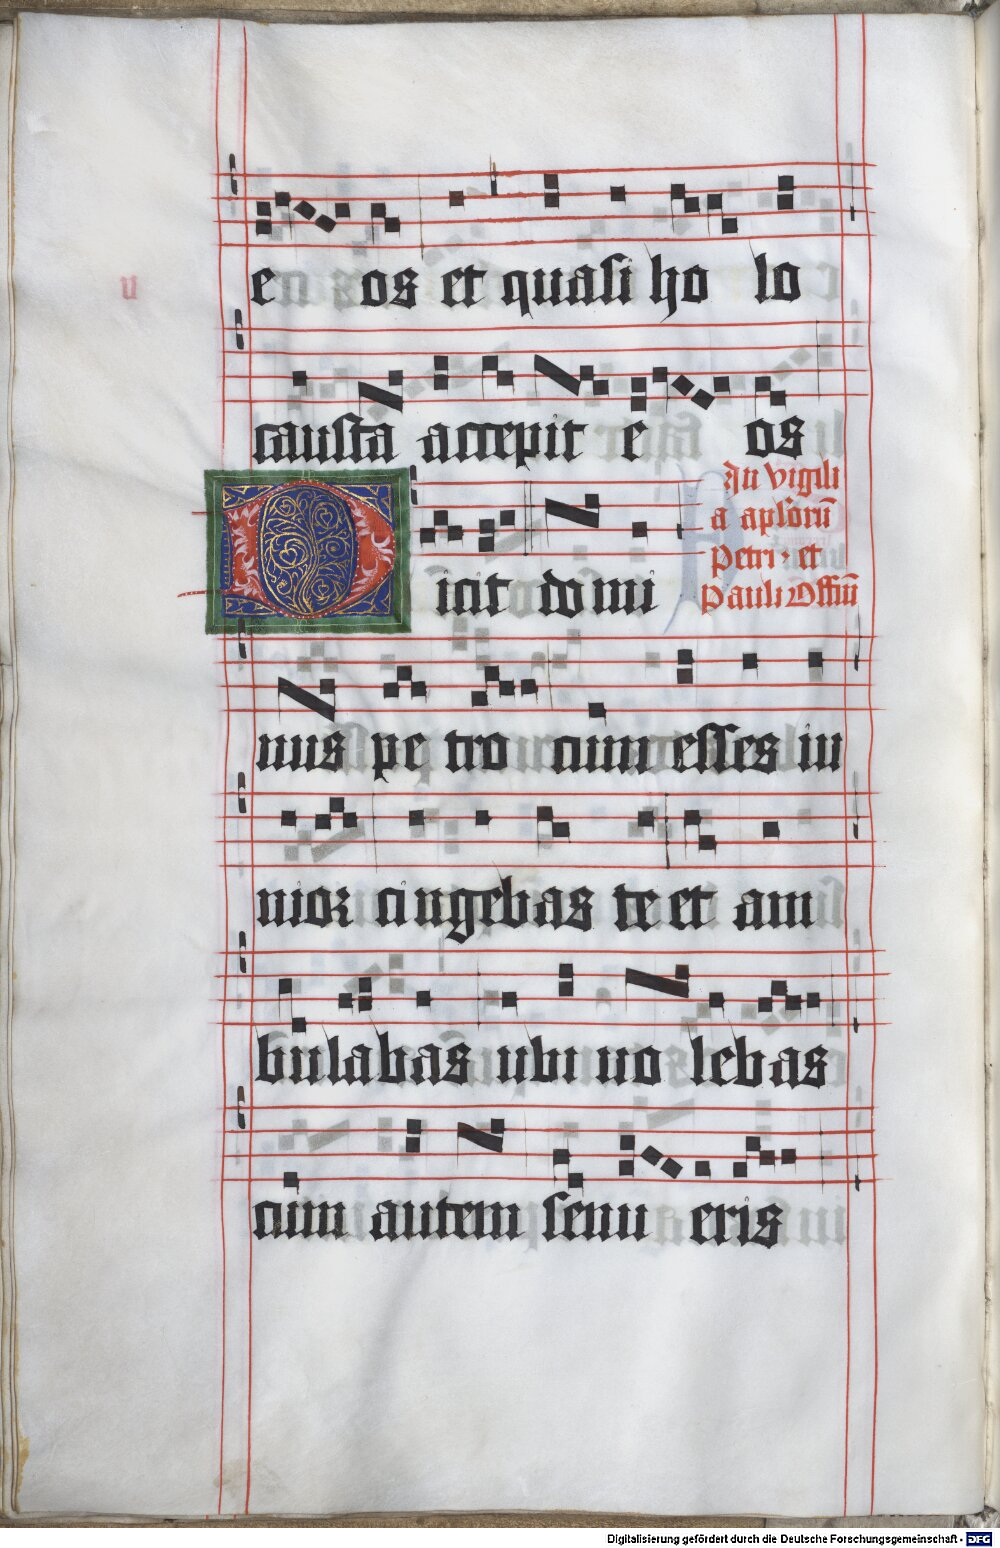 e os et quasi ho lo
causta accepit e os
In vigili
a aplorū
Petri et
Pauli Offiū
Dicit domi
nus pe tro cum esses iu
nior cingebas te et am
bulabas ubi uo lebas
cum autem senu eris
u
Digitalisierung gefördert durch die Deutsche Forschungsgemeinschaft - DFG